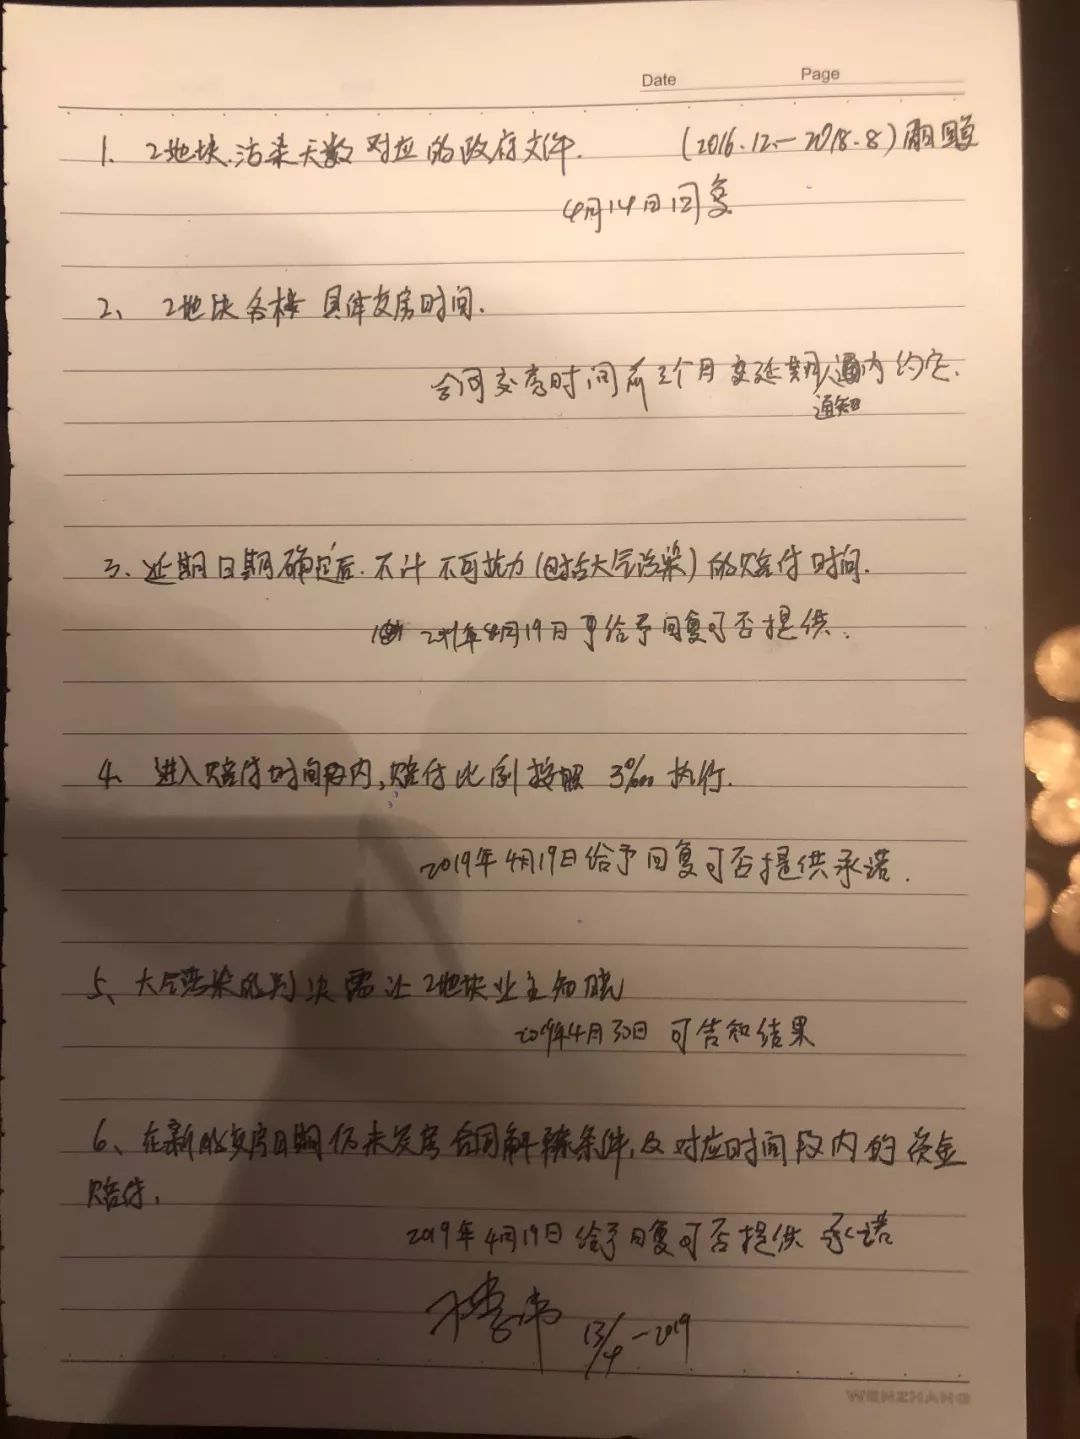 Date Page
1. 2地块.污染天数对应的政府文件. (2016.12.—2018.8)
4月14日回复
2、 2地块各楼 具体交房时间.
合同交房时间前2个月 延期 内约定.
通知
3、延期日期确定后.不计 不可抗力(包括大气污染)的赔付时间.
2019年4月19日 给予回复可否提供.
4、 进入赔付时间段内,赔付比例按照 3‱执行.
2019年4月19日给予回复可否提供承诺.
5、大气污染的判决需让2地块业主知晓
2019年4月30日 可告知结果
6、在新的交房日期仍未交房合同解除条件,及对应时间段内的资金
赔付.
2019年4月19日 给予回复可否提供 承诺
13/4-2019
WENZHANG